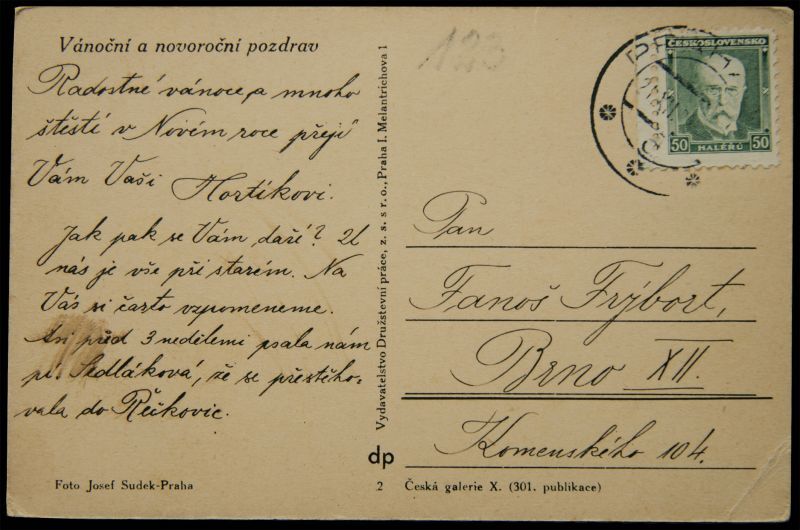 Vánoční a novoroční pozdrav
Radostné vánoce, a mnoho
štěstí v Novém roce přejí
Vám Vaši Hortíkovi.
Jak pak se Vám daří? U
nás je vše při starém. Na
Vás si často vzpomeneme.
Asi před 3 nedělemi psala nám
pí. Sedláková, že se přestěho-
vala do Řečkovic.
Foto Josef Sudek-Praha
Vydavatelstvo Družstevní práce, z. s. s r. o., Praha I. Melantrichova 1
dp
123
ČESKOSLOVENSKO
50 HALÉŘŮ 50
Pan
Fanoš Frýbort,
Brno XII.
Komenského 104.
2 Česká galerie X. (301. publikace)